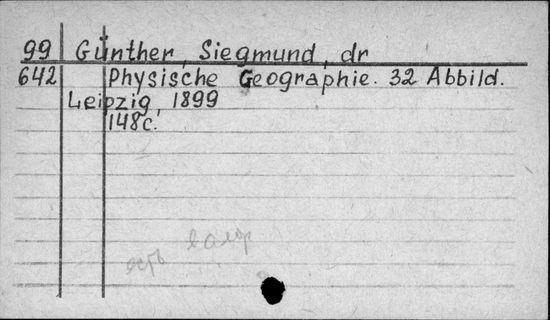 99 Günther, Siegmund, dr
642 Physische Geographie. 32 Abbild.
Leipzig, 1899
148c.